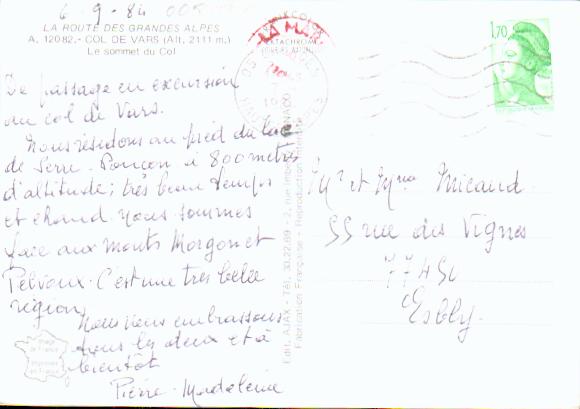 6-9-84
LA ROUTE DES GRANDES ALPES
A. 12082.- COL DE VARS (Alt. 2111 m.)
Le sommet du Col
De passage en excursion
au col de Vars.
Nous résidons au pied du lac
de Serre-Ponçon à 800 mètres
d'altitude; très beau temps
et chaud nous sommes
face aux monts Morgon et
Pelvoux. C'est une très belle
région
Nous vous embrassons
tous les deux et à
bientôt
Pierre-Madeleine
Image de France
Imprimée en France
Edit. AJAX - Tél. 30.22.69 - 2, rue
Fabrication Française - Reproduction
1,70
Mr et Mme Micaud
55 rue des Vignes
77450
Esbly.